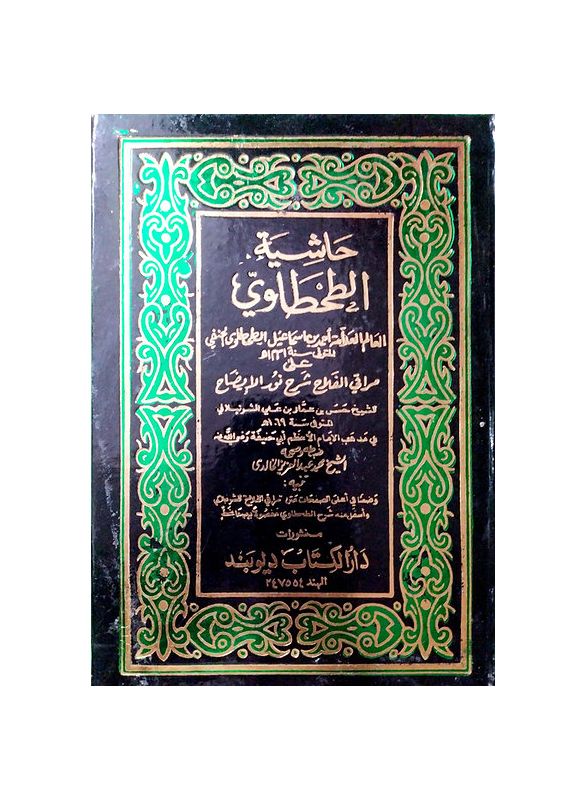 حاشية
الطحطاوي
العالم العلامة أحمد بن اسماعيل الطحطاوي الحنفي
المتوفى سنة ١٢٣١هـ
على
مراقي الفلاح شرح نور الإيضاح
للشيخ حسن بن عمار بن علي الشرنبلالي
المتوفى سنة ١٠٦٩هـ
في مذهب الإمام الأعظم أبي حنيفة
ضبطه وصححه
الشيخ محمد عبد العزيز الخالدي
تنبيه :
وضعنا في أعلى الصفحات متن مراقي الفلاح للشرنبلالي
وأسفل منه شرح الطحطاوي مفصولاً بينهما بخط
منشورات
دار الكتاب ديوبند
الهند ٢٤٧٥٥٤